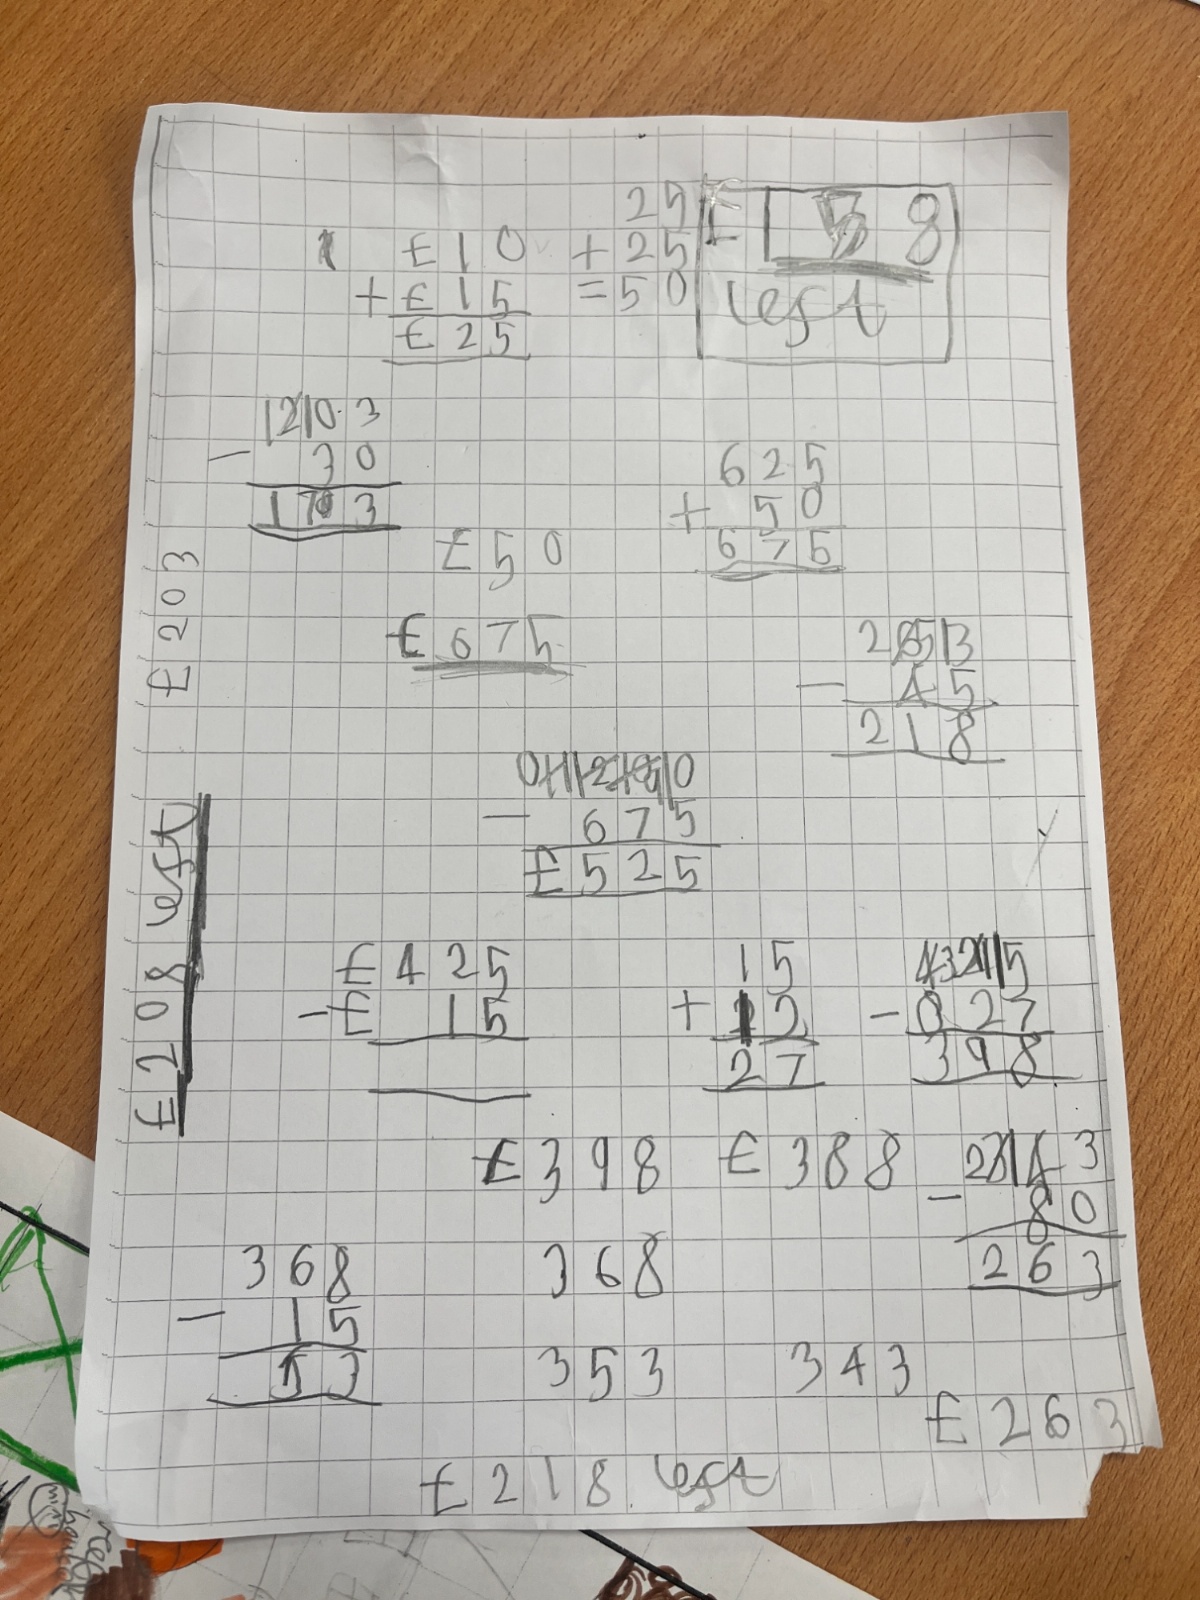 25
£10 + 25
+ £15 = 50
£25
£1 8
left
12103
- 30
173
625
+ 50
675
£50
£675
2 513
- 45
218
- 675
£525
£203
£208 left
£425
- £ 15
15
+ 12
27
- 027
398
£398 £388
43
- 80
263
368
- 15
53
368
353 343
£263
£218 left